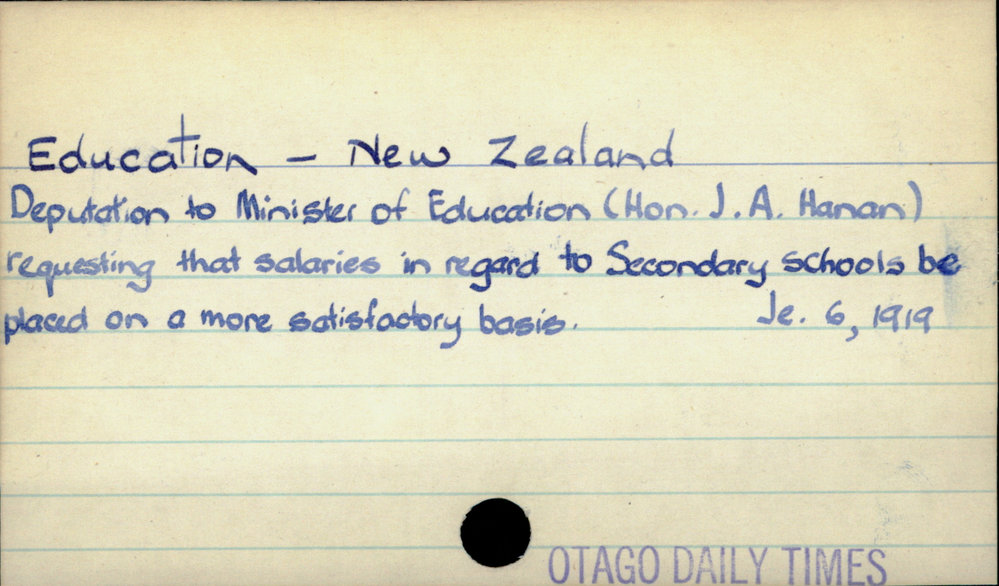 Education - New Zealand
Deputation to Minister of Education (Hon. J. A. Hanan)
requesting that salaries in regard to Secondary schools be
placed on a more satisfactory basis. Je. 6, 1919
OTAGO DAILY TIMES